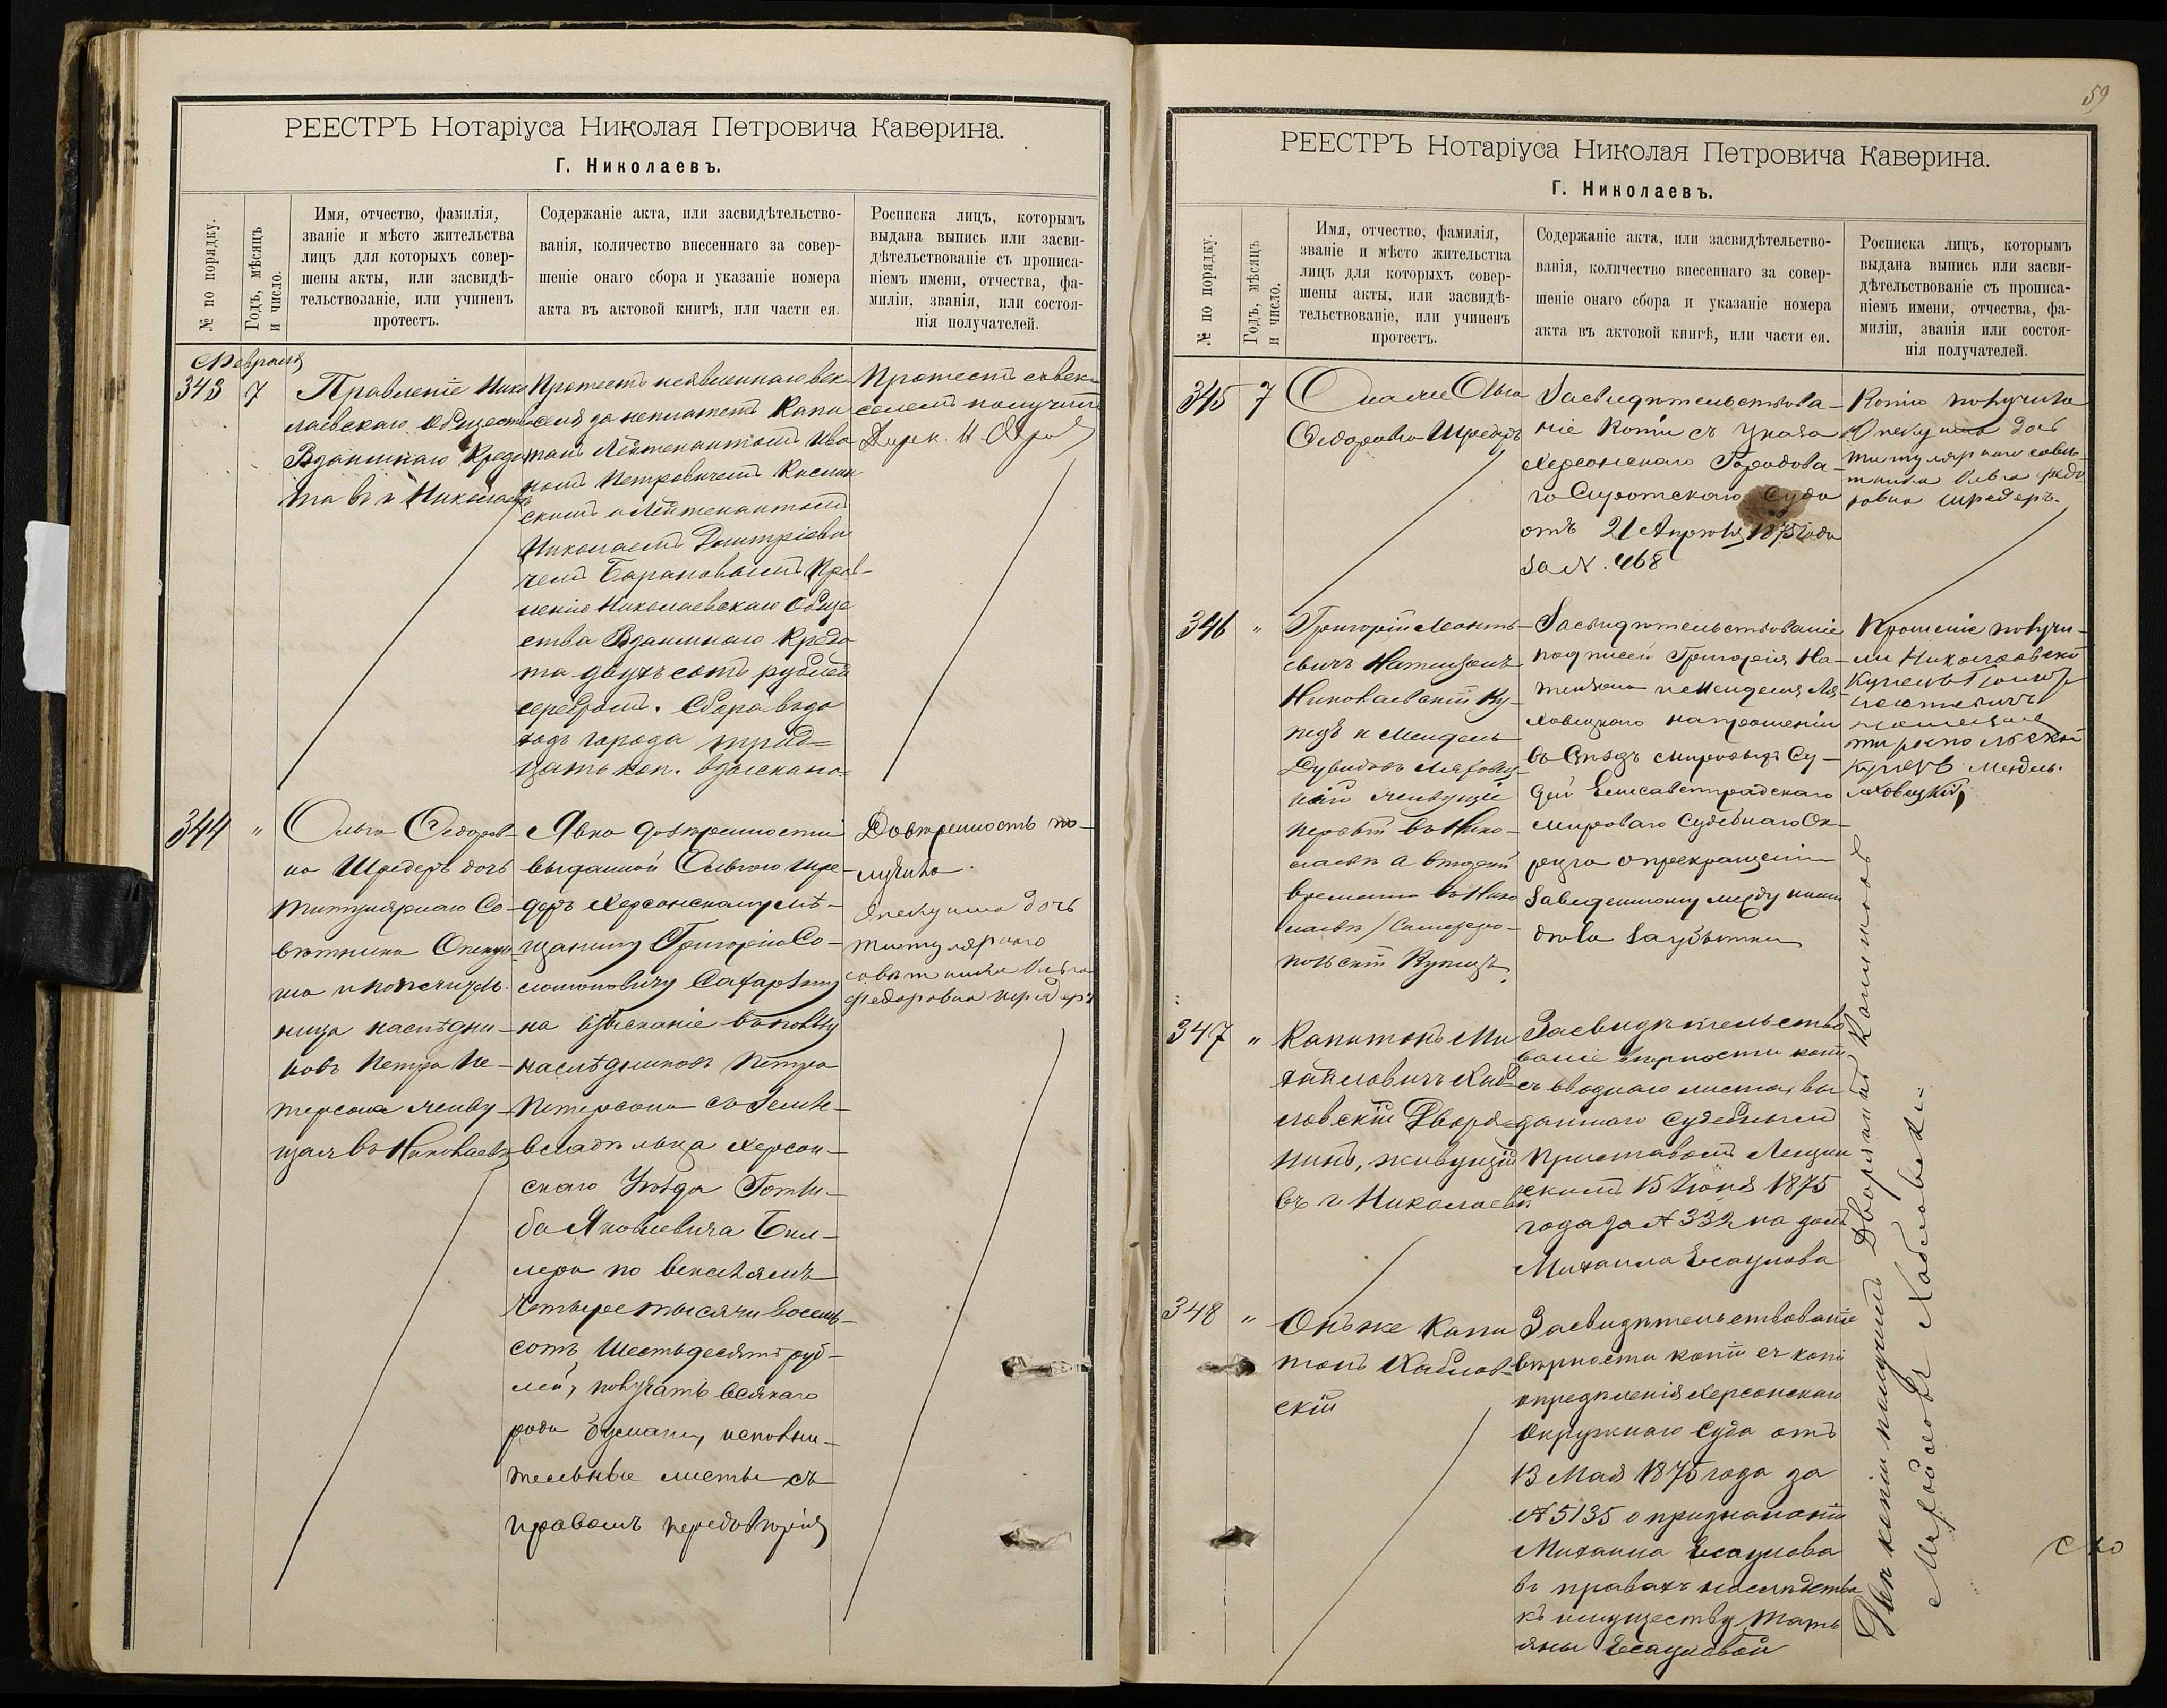 РЕЕСТРЪ Нотаріуса Николая Петровича Каверина.
Г. Николаевъ.
№ по порядку.
Годъ, мѣсяцъ
и число.
Имя, отчество, фамилія,
званіе и мѣсто жительства
лицъ для которыхъ совер-
шены акты, или засвидѣ-
тельствованіе, или учиненъ
протестъ.
Содержаніе акта, или засвидѣтельство-
ванія, количество внесеннаго за совер-
шеніе онаго сбора и указаніе номера
акта въ актовой книгѣ, или части ея.
Росписка лицъ, которымъ
выдана выпись или засви-
дѣтельствованіе съ прописа-
ніемъ имени, отчества, фа-
миліи, званія, или состоя-
нія получателей.
Февраля
343 7
Правленіе Нико
лаевскаго Общества
Взаимнаго Креди
та въ г Николаевѣ
Протестъ неявленнаго век
селя за неплатежъ Капи
танъ Лейтенантомъ Ива
номъ Петровичемъ
скимъ и Лейтенантомъ
Николаемъ Дмитріеви
чемъ Барановымъ Прав-
ленію Николаевскаго Обще
ства Взаимнаго Креди
та двухъ сотъ рублей
серебромъ. Сбора въ до
ходъ города трид=
цать коп. взыскано=
Протестъ съ век
селемъ получилъ
Дирек.
344 "
Ольга Ѳедоров-
на Шредеръ дочь
Титулярнаго Со-
вѣтника Опеку-
ша и попечитель
ница наслѣдни-
ковъ Петра Пе-
терсона живу-
щая въ Николаевѣ
Явка довѣренности
выданной Ольгою Шре-
деръ Херсонскому мѣ-
щанину Григорію Со-
ломоновичу
на взысканіе въ пользу
наслѣдниковъ Петра
Петерсона съ земле-
владѣльца Херсон-
скаго Уѣзда Готли-
ба Яковлевича Бил-
лера по векселямъ
Четыре тысячи восемь-
сотъ шестьдесятъ руб-
лей, получать всякаго
рода бумаги, исполни-
тельные листы съ
правомъ передовѣрія
Довѣренность по-
лучила
Опекунша дочь
титулярного
совѣтника Ольга
Федоровна Шредеръ
59
РЕЕСТРЪ Нотаріуса Николая Петровича Каверина.
Г. Николаевъ.
№ по порядку.
Годъ, мѣсяцъ
и число.
Имя, отчество, фамилія,
званіе и мѣсто жительства
лицъ для которыхъ совер-
шены акты, или засвидѣ-
тельствованіе, или учиненъ
протестъ.
Содержаніе акта, или засвидѣтельство-
ванія, количество внесеннаго за совер-
шеніе онаго сбора и указаніе номера
акта въ актовой книгѣ, или части ея.
Росписка лицъ, которымъ
выдана выпись или засви-
дѣтельствованіе съ прописа-
ніемъ имени, отчества, фа-
миліи, званія или состоя-
нія получателей.
345 7
Она же Ольга
Ѳедоровна Шредеръ
Засвидѣтельствова-
ніе копіи съ указа
Херсонскаго Городова-
го Сиротскаго Суда
отъ 21 Апрѣля 1875 года
за N. 468
Копію получила
Опекунша дочь
титулярнаго совѣ-
тника Ольга Федо
ровна Шредеръ.
346 "
Григорій
евичъ Натензонъ
Николаевскій Ку-
пецъ и Мендель
Дувидовъ Ляховец-
кій живущіе
первый въ Нико-
лаевѣ а второй
временно въ Нико
лаевѣ / Симферо-
польскій Купецъ.
Засвидѣтельствованіе
подписей Григорія На-
тензона и Менделя Ля-
ховецкаго на прошеніи
въ Съѣздъ Мировыхъ Су-
дей Елисаветградскаго
Мироваго Судебнаго Ок-
руга о прекращеніи
заведенному между ними
дѣла за убытки
Прошеніе получи-
ли Николаевскій
Купецъ
Купецъ Мендель
Ляховецкій
347 "
Капитонъ Ми
хайловичъ Хаб
ловскій Дворя=
нинъ, живущій
въ г Николаевѣ
Засвидѣтельство
ваніе вѣрности копіи
съ вводнаго листа, вы
даннаго Судебнымъ
Приставомъ Лещин
скимъ 15 Іюня 1875
года за N 332 на домъ
Михаила Есаулова
348 "
Онъ же Капи
тонъ Хаблов-
скій
Засвидѣтельствованіе
вѣрности копіи съ копіи
опредѣленія Херсонскаго
Окружнаго Суда отъ
13 Мая 1875 года за
N 5135 о признаніи
Михаила Есаулова
въ правахъ наслѣдства
къ имуществу Тать
яны Есауловой
Двѣ копіи получилъ Дворянинъ Капитонъ
Михайловъ Хабловскі=